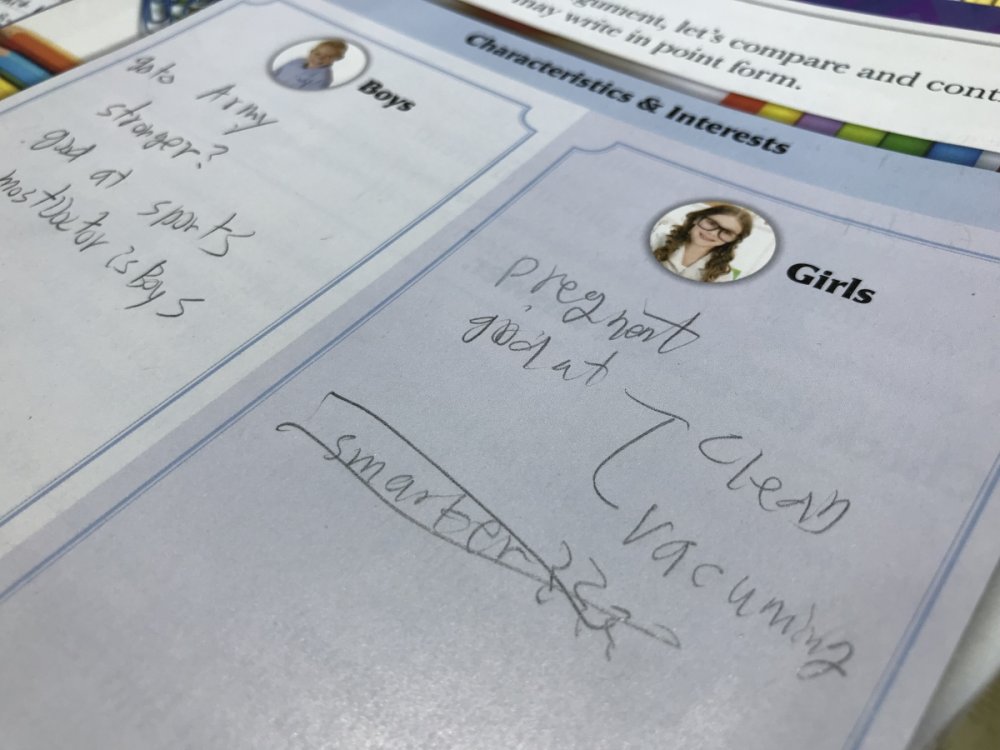 gument, let's compare and cont
may write in point form.
Characteristics & Interests
Boys
goto Army
stronger?
good at sports
most Doctor is Boys
Girls
pregnent
good at
clean
vacuming
smarter???